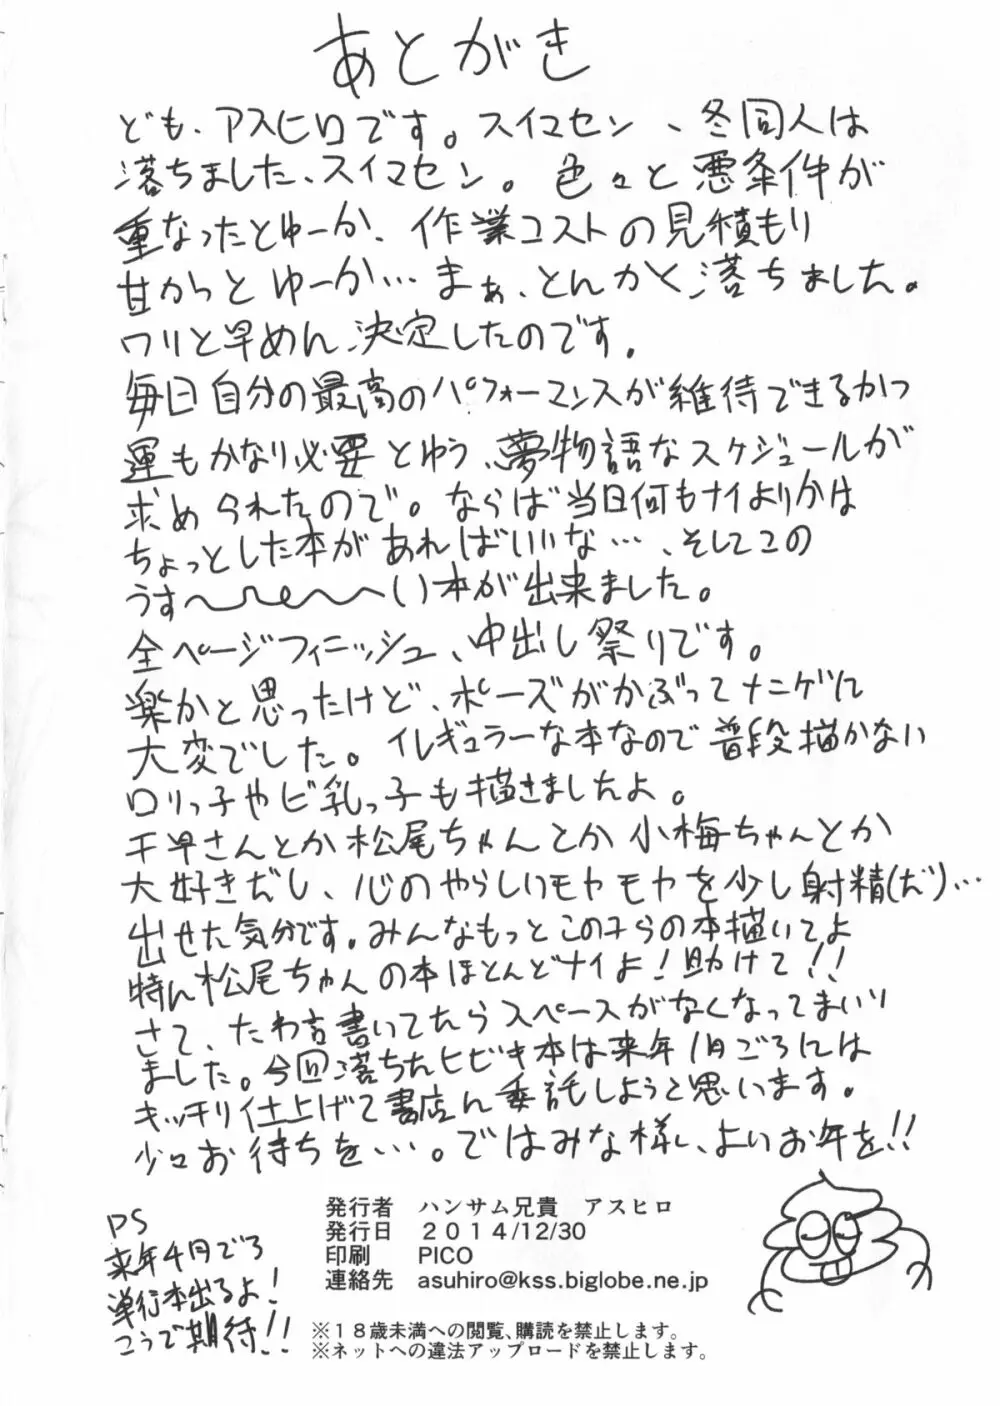 あとがき
ども、アスヒロです。スイマセン、冬同人は
落ちました、スイマセン。色々と悪条件が
重なったとゆーか、作業コストの見積もり
甘かっとゆーか…まぁ、とんかく落ちました。
ワリと早めん決定したのです。
毎日自分の最高のパフォーマンスが維持できるかつ
運もかなり必要とゆう、夢物語なスケジュールが
求められたので。ならば当日何もナイよりかは
ちょっとした本があればいいな…、そしてこの
うす〜〜〜い本が出来ました。
全ページフィニッシュ、中出し祭りです。
楽かと思ったけど、ポーズがかぶってナニゲに
大変でした。イレギュラーな本なので普段描かない
ロリっ子やビ乳っ子も描きましたよ。
千早さんとか松尾ちゃんとか小梅ちゃんとか
大好きだし、心のやらしいモヤモヤを少し射精(だ)…
出せた気分です。みんなもっとこの子らの本描いてよ
特ん松尾ちゃんの本ほとんどナイよ！助けて!!
さて、たわ言書いてたらスペースがなくなってまいり
ました。今回落ちたヒビキ本は来年1月ごろには
キッチリ仕上げて書店ん委託しようと思います。
少々お待ちを…。ではみな様、よいお年を!!
PS
来年4月ごろ
単行本出るよ！
こうご期待!!
発行者　ハンサム兄貴　アスヒロ
発行日　２０14/12/30
印刷　PICO
連絡先　asuhiro@kss.biglobe.ne.jp
※１８歳未満への閲覧、購読を禁止します。
※ネットへの違法アップロードを禁止します。